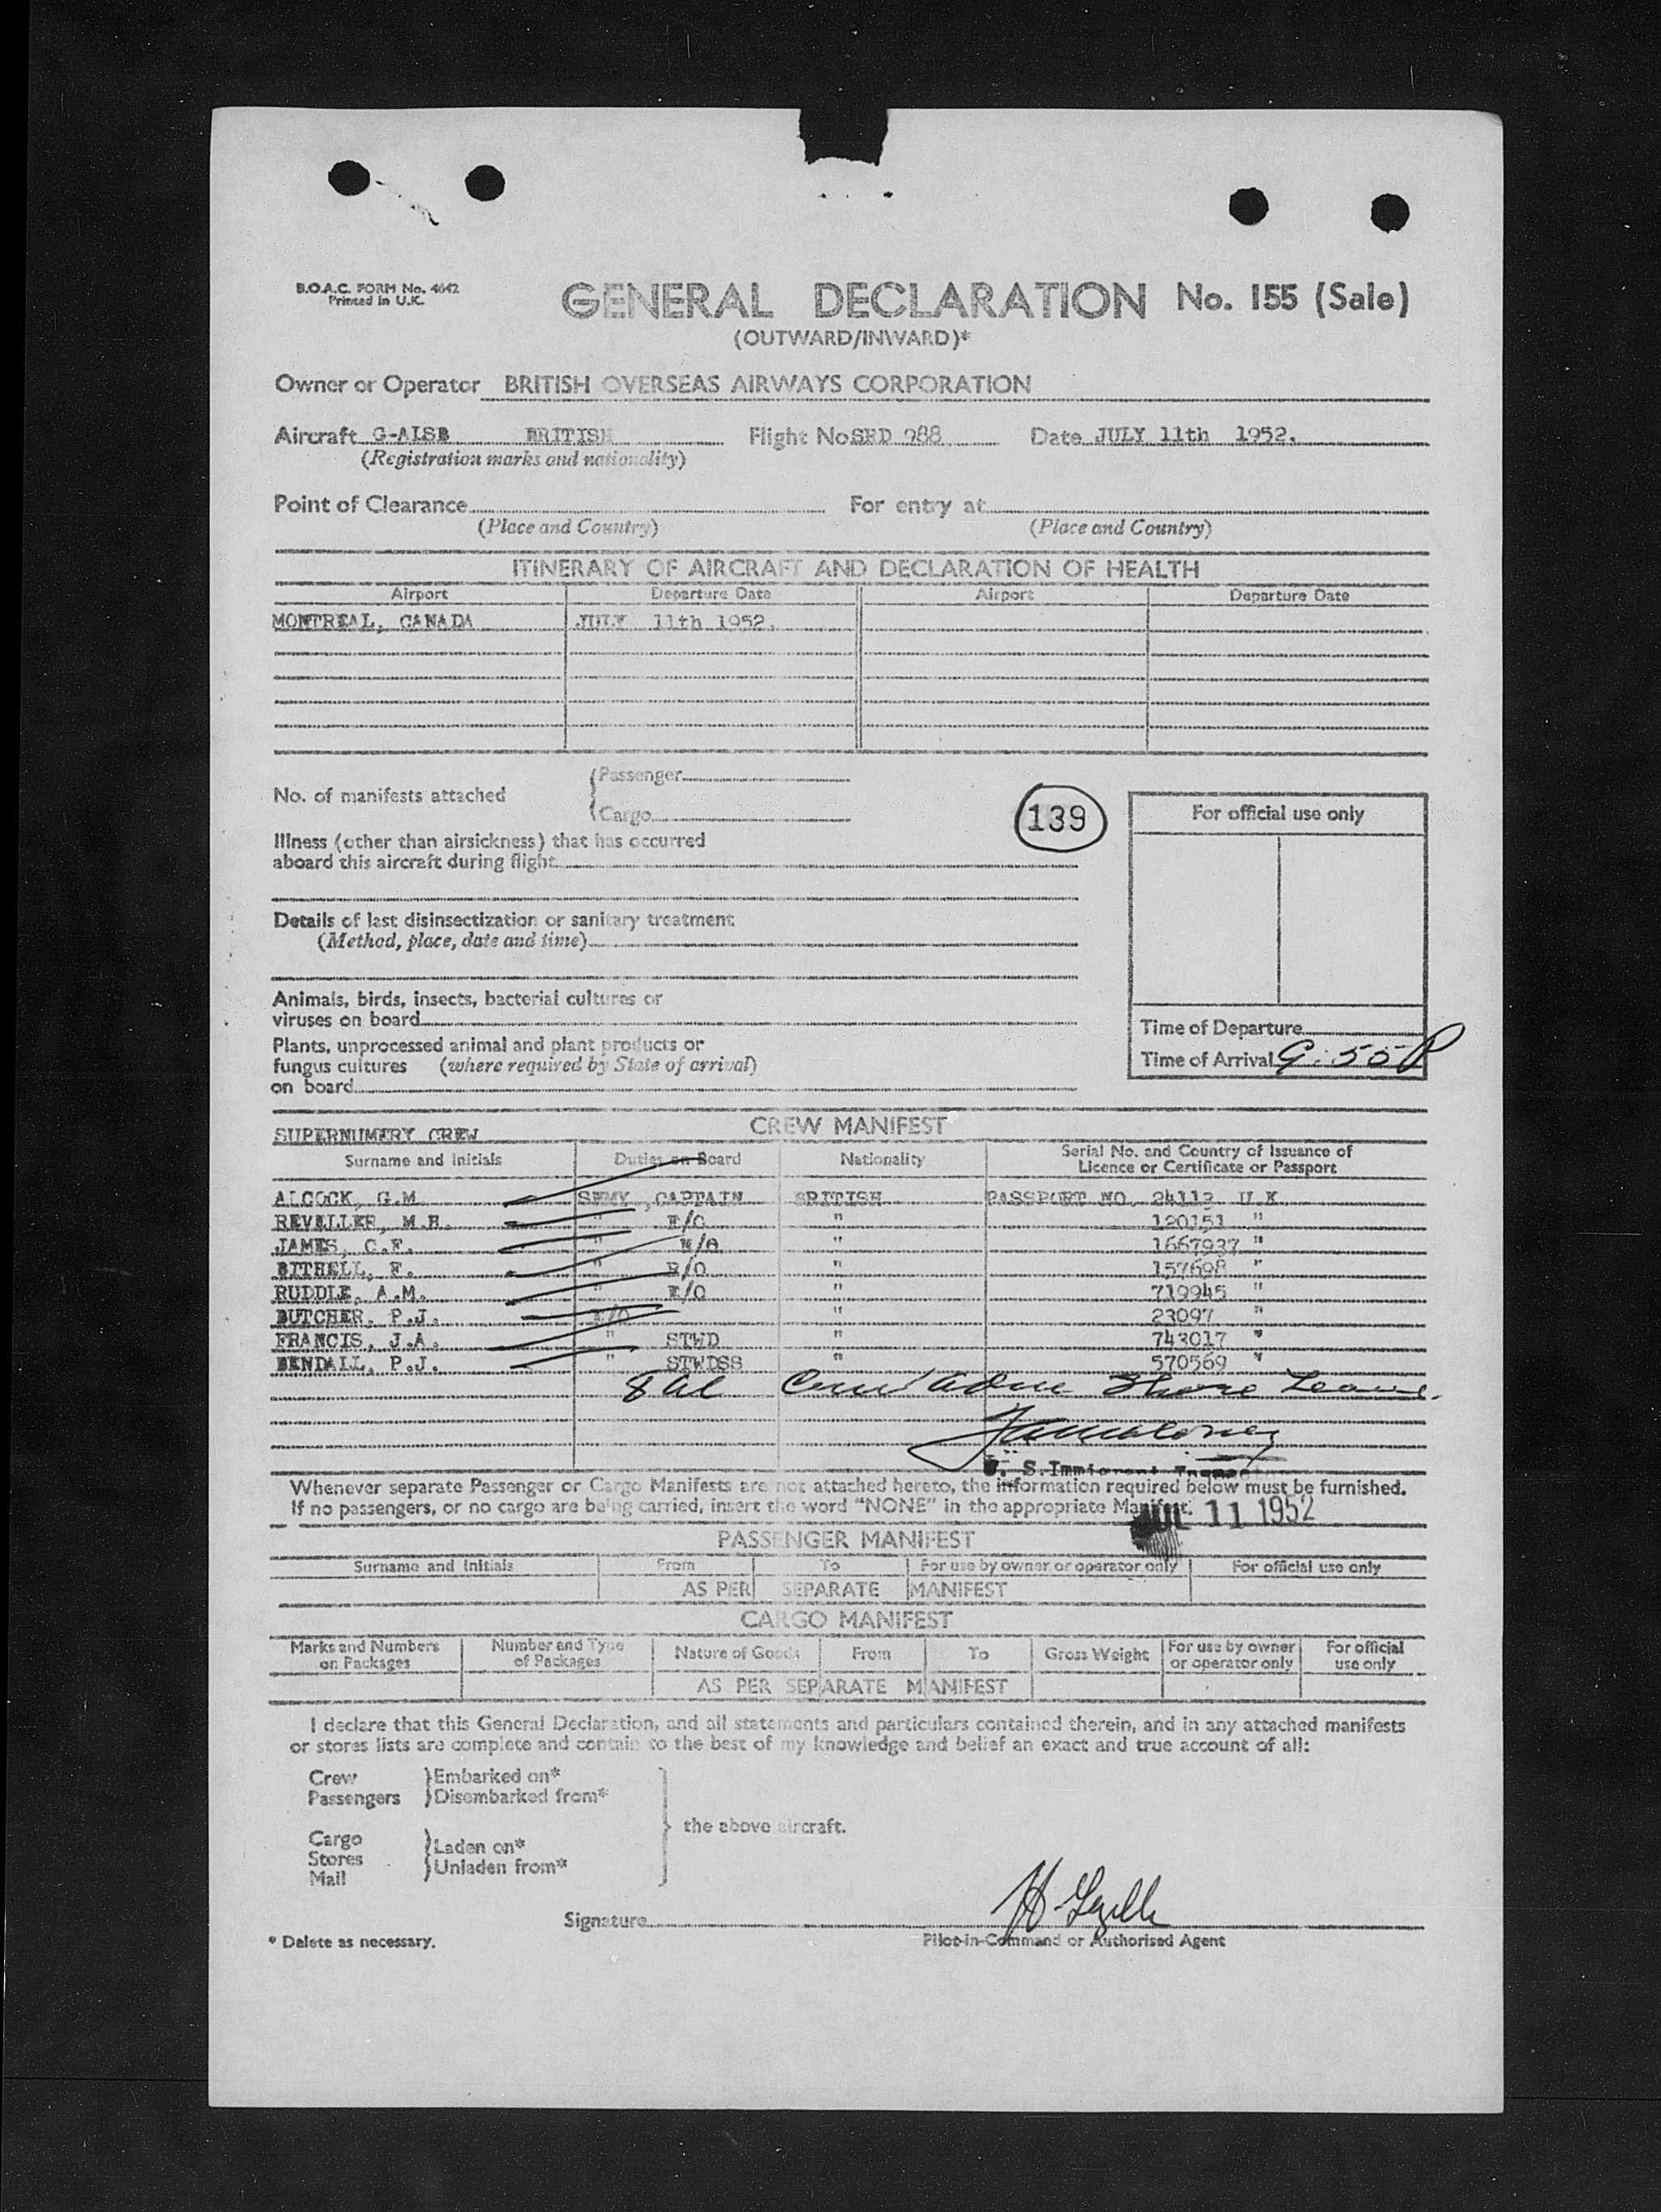 B.O.A.C. FORM No. 4642
Printed in U.K.
GENERAL DECLARATION No. 155 (Sale)
(OUTWARD/INWARD)*
Owner or Operator BRITISH OVERSEAS AIRWAYS CORPORATION
Aircraft G-ALSB BRITISH Flight No SRD 988 Date JULY 11th 1952.
(Registration marks and nationality)
Point of Clearance For entry at
(Place and Country) (Place and Country)
ITINERARY OF AIRCRAFT AND DECLARATION OF HEALTH
Airport Departure Date Airport Departure Date
MONTREAL, CANADA JULY 11th 1952.
No. of manifests attached
Passenger
Cargo
139
For official use only
Illness (other than airsickness) that has occurred
aboard this aircraft during flight
Details of last disinsectization or sanitary treatment
(Method, place, date and time)
Animals, birds, insects, bacterial cultures or
viruses on board
Plants, unprocessed animal and plant products or
fungus cultures (where required by State of arrival)
on board
Time of Departure
Time of Arrival 9:55 P
CREW MANIFEST
SUPERNUMERY CREW
Surname and Initials Duties on Board Nationality Serial No. and Country of Issuance of
Licence or Certificate or Passport
ALCOCK, G.M. CAPTAIN BRITISH PASSPORT NO. 24113 U.K.
REVELLER, M.H. " F/O " 120151 "
JAMES, C.F. " N/O " 1667937 "
BITHELL, F. " R/O " 157698 "
RUDDLE, A.M. " E/O " 719945 "
BUTCHER, P.J. E/O " 23097 "
FRANCIS, J.A. " STWD " 743017 "
BENDALL, P.J. " STWDSS " 570569 "
8 al Crew adm Shore Leave.
U. S. Immigrant Inspector
Whenever separate Passenger or Cargo Manifests are not attached hereto, the information required below must be furnished.
If no passengers, or no cargo are being carried, insert the word "NONE" in the appropriate Manifest.
JUL 11 1952
PASSENGER MANIFEST
Surname and Initials From To For use by owner or operator only For official use only
AS PER SEPARATE MANIFEST
CARGO MANIFEST
Marks and Numbers on Packages Number and Type of Packages Nature of Goods From To Gross Weight For use by owner or operator only For official use only
AS PER SEPARATE MANIFEST
I declare that this General Declaration, and all statements and particulars contained therein, and in any attached manifests
or stores lists are complete and contain to the best of my knowledge and belief an exact and true account of all:
Crew Embarked on*
Passengers Disembarked from*
the above aircraft.
Cargo
Stores Laden on*
Mail Unladen from*
Signature
* Delete as necessary. Pilot-in-Command or Authorised Agent